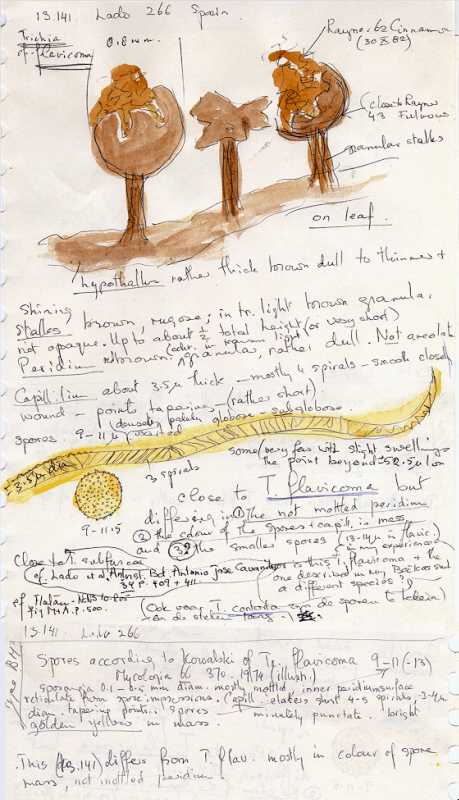 13.141 Lado 266 Spain.
Trichia
cf flavicoma
0.8 mm.
Rayner 62 Cinnamon
(30 X 82)
close to Rayner
43 Fulvous
granular stalks
on leaf.
hypothallus rather thick brown dull to thinner +
shining
Stalks brown, rugose, in tr. light brown granular,
not opaque. Up to about 1/2 total height (or very short)
Peridium brown, granular, rather dull. Not areolate
Capillitium about 3.5µ thick - mostly 4 spirals - smooth closely
wound - points tapering - (rather short).
spores 9-11µ globose - subglobose.
3.5µ dia
3 spirals
some (very few with slight swelling
the point beyond
9-11.5
close to T. flavicoma but
differing in ① the not mottled peridium
② the colour of the spores + capill. in mass
and ③ the smaller spores (13-14µ in flavic.
in my experience)
Close to T. subfusca
cf Lado et al. Anal. Bot. Antonio Jose Cavanilles
34 p. 409 + 411
is this T. flavicoma + the
one described in my
a different species?)
cf
Fig 14 A. p. 500.
(Ook voor T. contorta zijn de sporen te klein)
en de stelen lang.
13.141 Lado 266
Spores according to Kowalski of Tr. flavicoma 9-11 (-13)
Mycologia 66 370. 1974 (illustr.)
sporangia 0.1-0.5 mm diam. mostly mottled, inner peridium surface
reticulate from spore impressions. Capill. elaters short 4-5 spirals, 3-4µ
diam tapering points. Spores minutely punctate. bright
golden yellow in mass.
This (13.141) differs from T. flav. mostly in colour of spore
mass, not mottled peridium